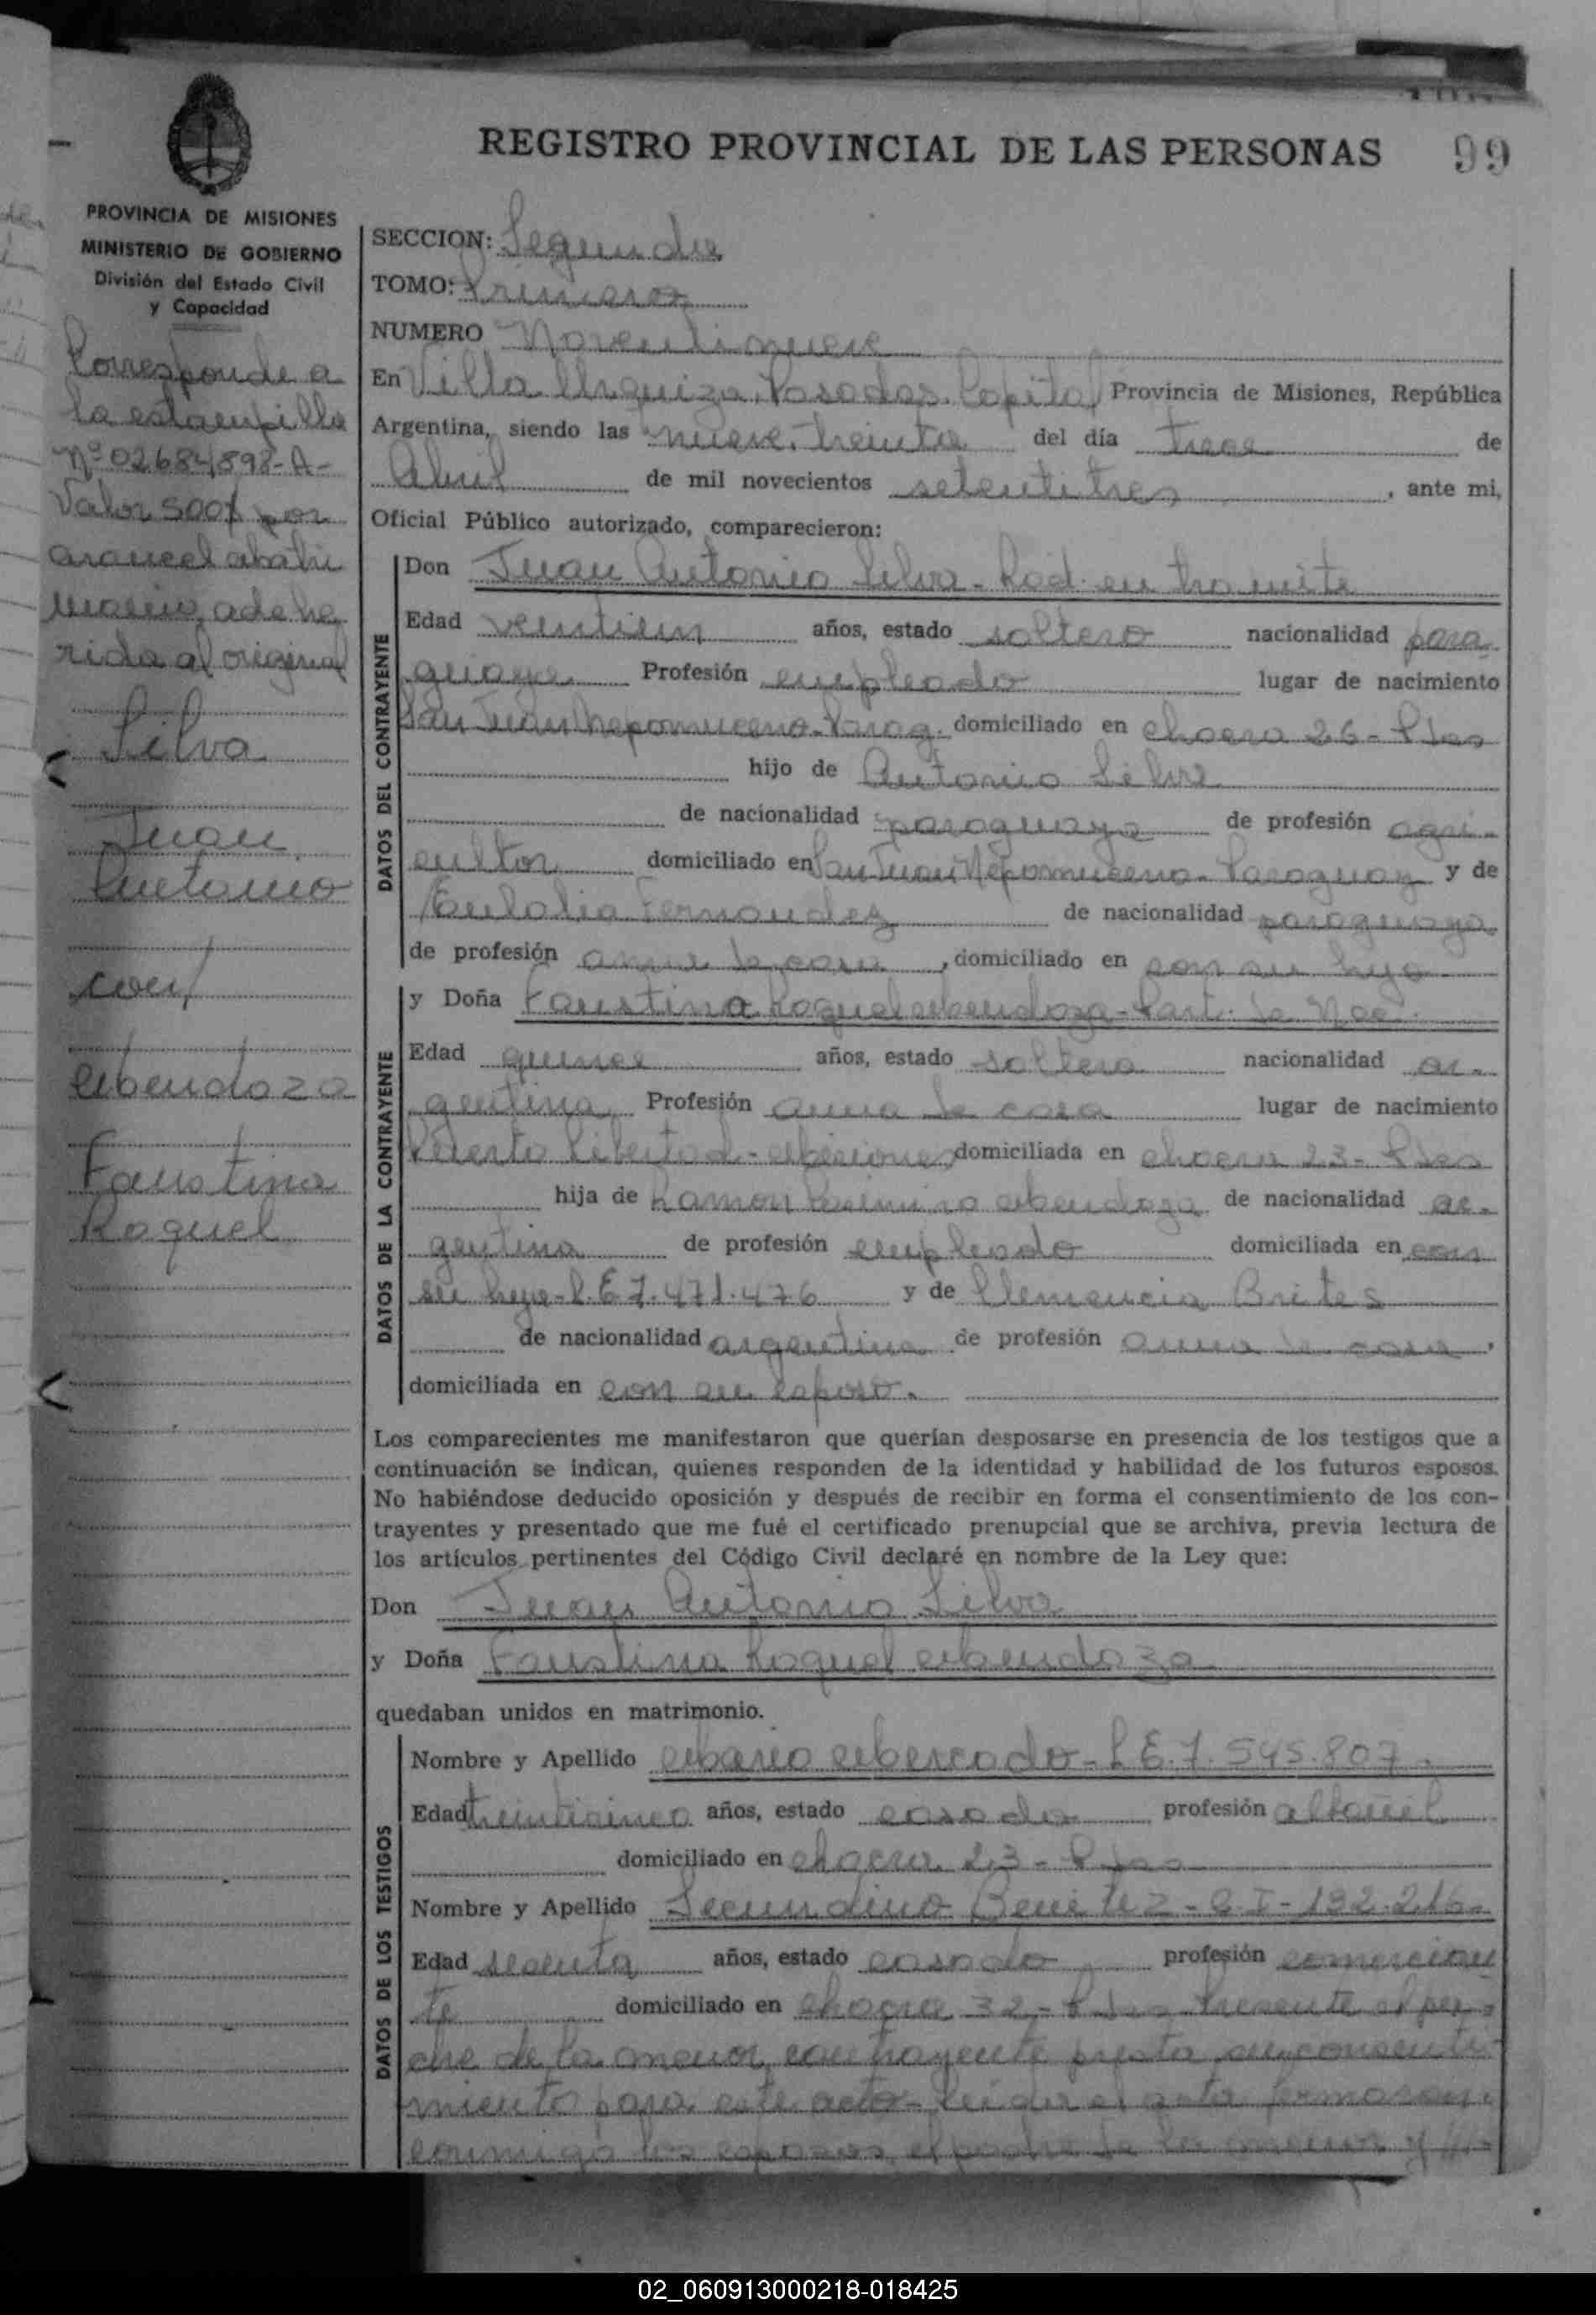 REGISTRO PROVINCIAL DE LAS PERSONAS 99
PROVINCIA DE MISIONES
MINISTERIO DE GOBIERNO
División del Estado Civil
y Capacidad
Corresponde a
la estampilla
Nº 02684898-A-
Valor 500 por
arancel matri
monio, adhe
rida al original
Silva
Juan
Antonio
con
Mendoza
Faustina
Raquel
SECCION: Segunda
TOMO: Primero
NUMERO Noventinueve
En Villa Urquiza, Posadas, Capital Provincia de Misiones, República
Argentina, siendo las nueve, treinta del día trece de
Abril de mil novecientos setentitres, ante mi,
Oficial Público autorizado, comparecieron:
DATOS DEL CONTRAYENTE
Don Juan Antonio Silva - Rad. en tramite
Edad veintiun años, estado soltero nacionalidad para-
guaya Profesión empleado lugar de nacimiento
San Juan Nepomuceno - Parag. domiciliado en chacra 26 - Pdas
hijo de Antonio Silva
de nacionalidad paraguaya de profesión agri-
cultor domiciliado en San Juan Nepomuceno - Paraguay y de
Eulalia Fernandez de nacionalidad paraguaya
de profesión ama de casa, domiciliado en con su hijo
DATOS DE LA CONTRAYENTE
y Doña Faustina Raquel Mendoza - Part. de Nac.
Edad quince años, estado soltera nacionalidad ar-
gentina Profesión ama de casa lugar de nacimiento
Puerto Libertad - Misiones domiciliada en chacra 23 - Pdas
hija de Ramon Mendoza de nacionalidad ar-
gentina de profesión empleado domiciliada en con
su hija - L.E 7.471.476 y de Clemencia Brites
de nacionalidad argentina de profesión ama de casa,
domiciliada en con su esposo.
Los comparecientes me manifestaron que querían desposarse en presencia de los testigos que a
continuación se indican, quienes responden de la identidad y habilidad de los futuros esposos.
No habiéndose deducido oposición y después de recibir en forma el consentimiento de los con-
trayentes y presentado que me fué el certificado prenupcial que se archiva, previa lectura de
los artículos pertinentes del Código Civil declaré en nombre de la Ley que:
Don Juan Antonio Silva
y Doña Faustina Raquel Mendoza
quedaban unidos en matrimonio.
DATOS DE LOS TESTIGOS
Nombre y Apellido Mario Mercado - L.E. 7.545.807.
Edad treinticinco años, estado casado profesión albañil
domiciliado en chacra 23 - Pdas
Nombre y Apellido Secundino Benitez - C.I - 132.216.
Edad sesenta años, estado casado profesión comercian
te domiciliado en chacra 32 - Pdas Presente el pa-
dre de la menor contrayente presta su consenti-
miento para este acto - Leida el acta firmaron
conmigo los esposos, el padre de la menor y
02_060913000218-018425